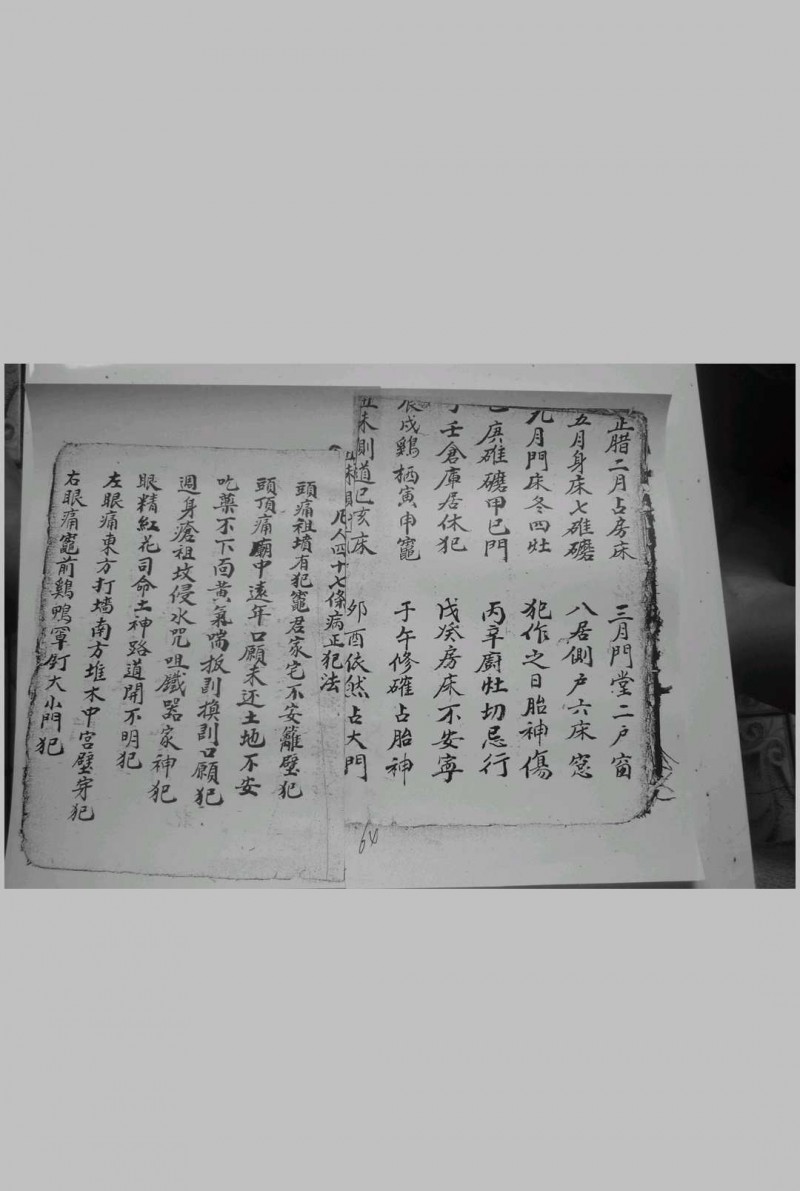 正腊二月占房床　三月門堂二戸窗
五月身床七碓磨　八居側戸六床窓
九月門床冬四灶　犯作之日胎神傷
己庚碓磨甲巳門　丙辛厨灶切忌行
丁壬倉庫居休犯　戊癸房床不安寧
辰戌鷄栖寅申竈　子午修確占胎神
丑未則道巳亥床　夘酉依然占大門
凡人四十七條病正犯法
頭痛祖墳有犯竈君家宅不安籬壁犯
頭頂痛廟中遠年口願未还土地不安
吃藥不下面黄氣喘扳割換割口願犯
週身瘡祖坟侵水咒咀鐵器家神犯
眼精紅花司命土神路道開不明犯
左眼痛東方打墙南方堆木中宮壁穿犯
右眼痛竈前鷄鴨罩釘大小門犯
64